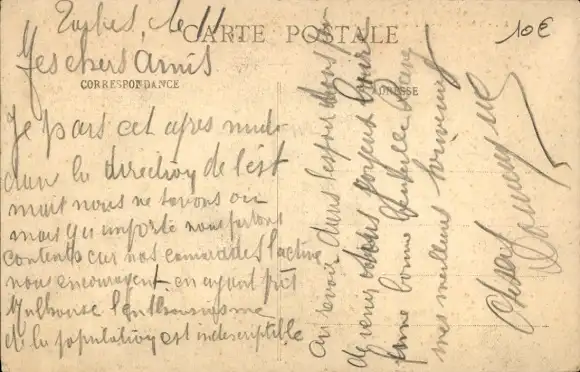 Tarbes, le 11
CARTE POSTALE
10€
Mes chers Amis
CORRESPONDANCE
ADRESSE
Je pars cet après midi
dans la direction de l'est
mais nous ne savons ou
mais qu importe nous partons
contents car nos camarades l'active
nous encouragent en ayant pris
Mulhouse l'enthousiasme
de la population est indescriptible
au revoir dans l'espoir
de venir soyez
une bonne
mes meilleurs souvenirs